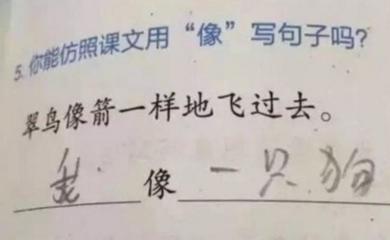 5. 你能仿照课文用“像”写句子吗？
翠鸟像箭一样地飞过去。
我 像 一只狗